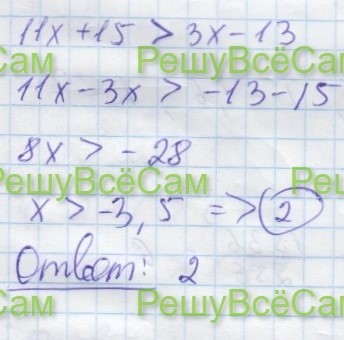 11x + 15 > 3x - 13
РешуВсёСам
11x - 3x > -13 - 15
8x > - 28
РешуВсёСам
x > -3,5 => 2
Ответ: 2
Сам РешуВсёСа